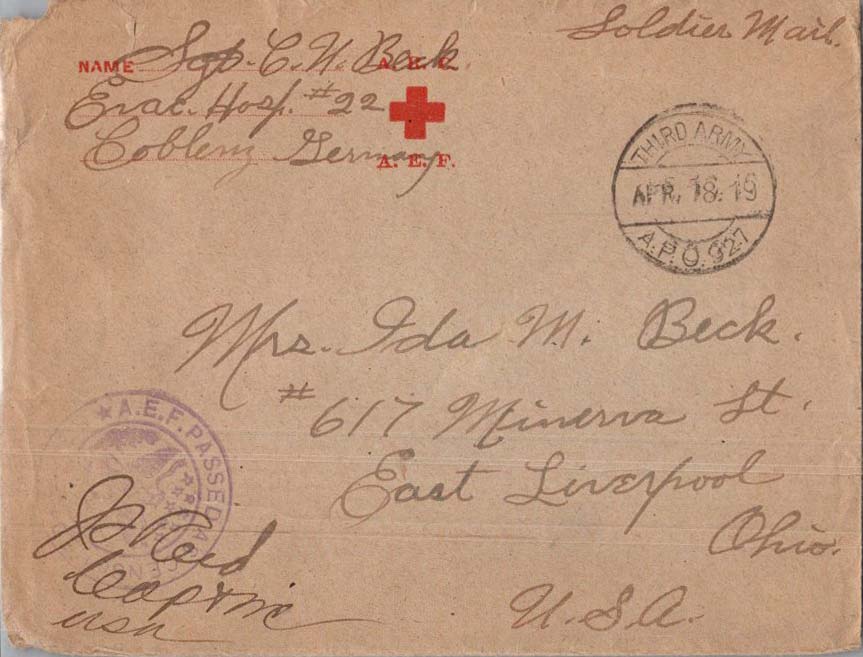 Soldier Mail.
NAME Sgt. C. N. Beck A.R.C.
Evac. Hosp. #22
Coblenz Germany A.E.F.
THIRD ARMY
APR. 18. 19
A.P.O. 927
Mrs. Ida M. Beck.
#617 Minerva St.
East Liverpool
Ohio.
U.S.A.
A.E.F. PASSED AS CENSORED
Reed
Capt MC
USA